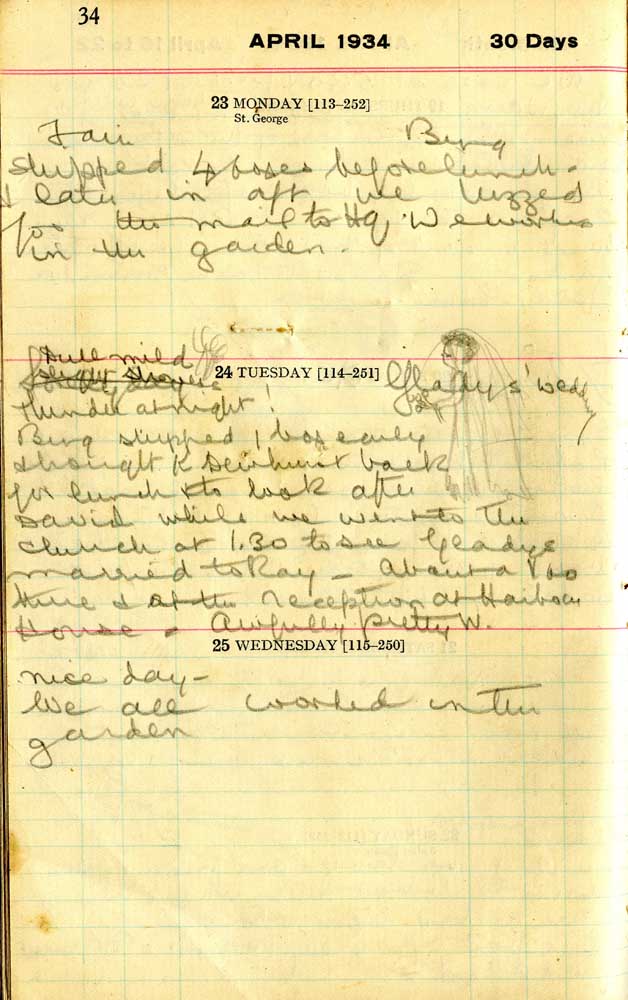 34
APRIL 1934 30 Days
23 MONDAY [113–252]
St. George
Fair. Bing
shipped 4 boxes before lunch.
& later in aft we
for the mail to Hg. We works
in the garden.
Dull mild
24 TUESDAY [114–251] Gladys' wedding
thunder at night!
Bing shipped 1 box early
& brought K Dewhurst back
for lunch & to look after
David while we went to the
church at 1.30 to see Gladys
married to Ray – About a 100
there & at the reception at Harbour
House & Awfully pretty W.
25 WEDNESDAY [115–250]
nice day –
We all worked in the
garden